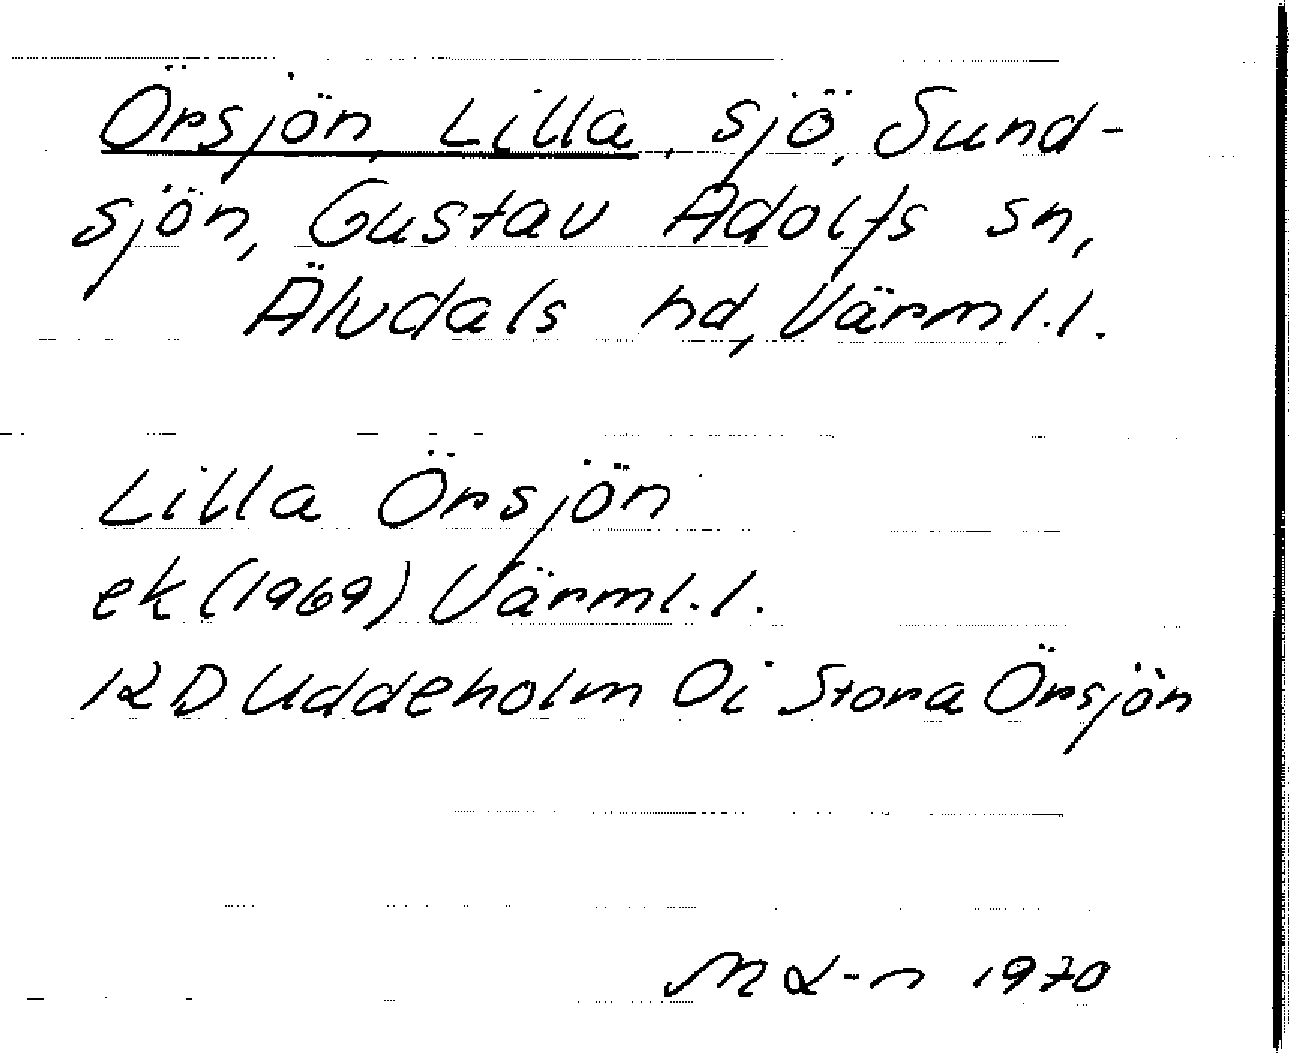 Örsjön, Lilla, sjö, Sund-
sjön, Gustav Adolfs sn,
Älvdals hd, Värml.l.
Lilla Örsjön
ek (1969) Värml.l.
12D Uddeholm 0i Stora Örsjön
1970